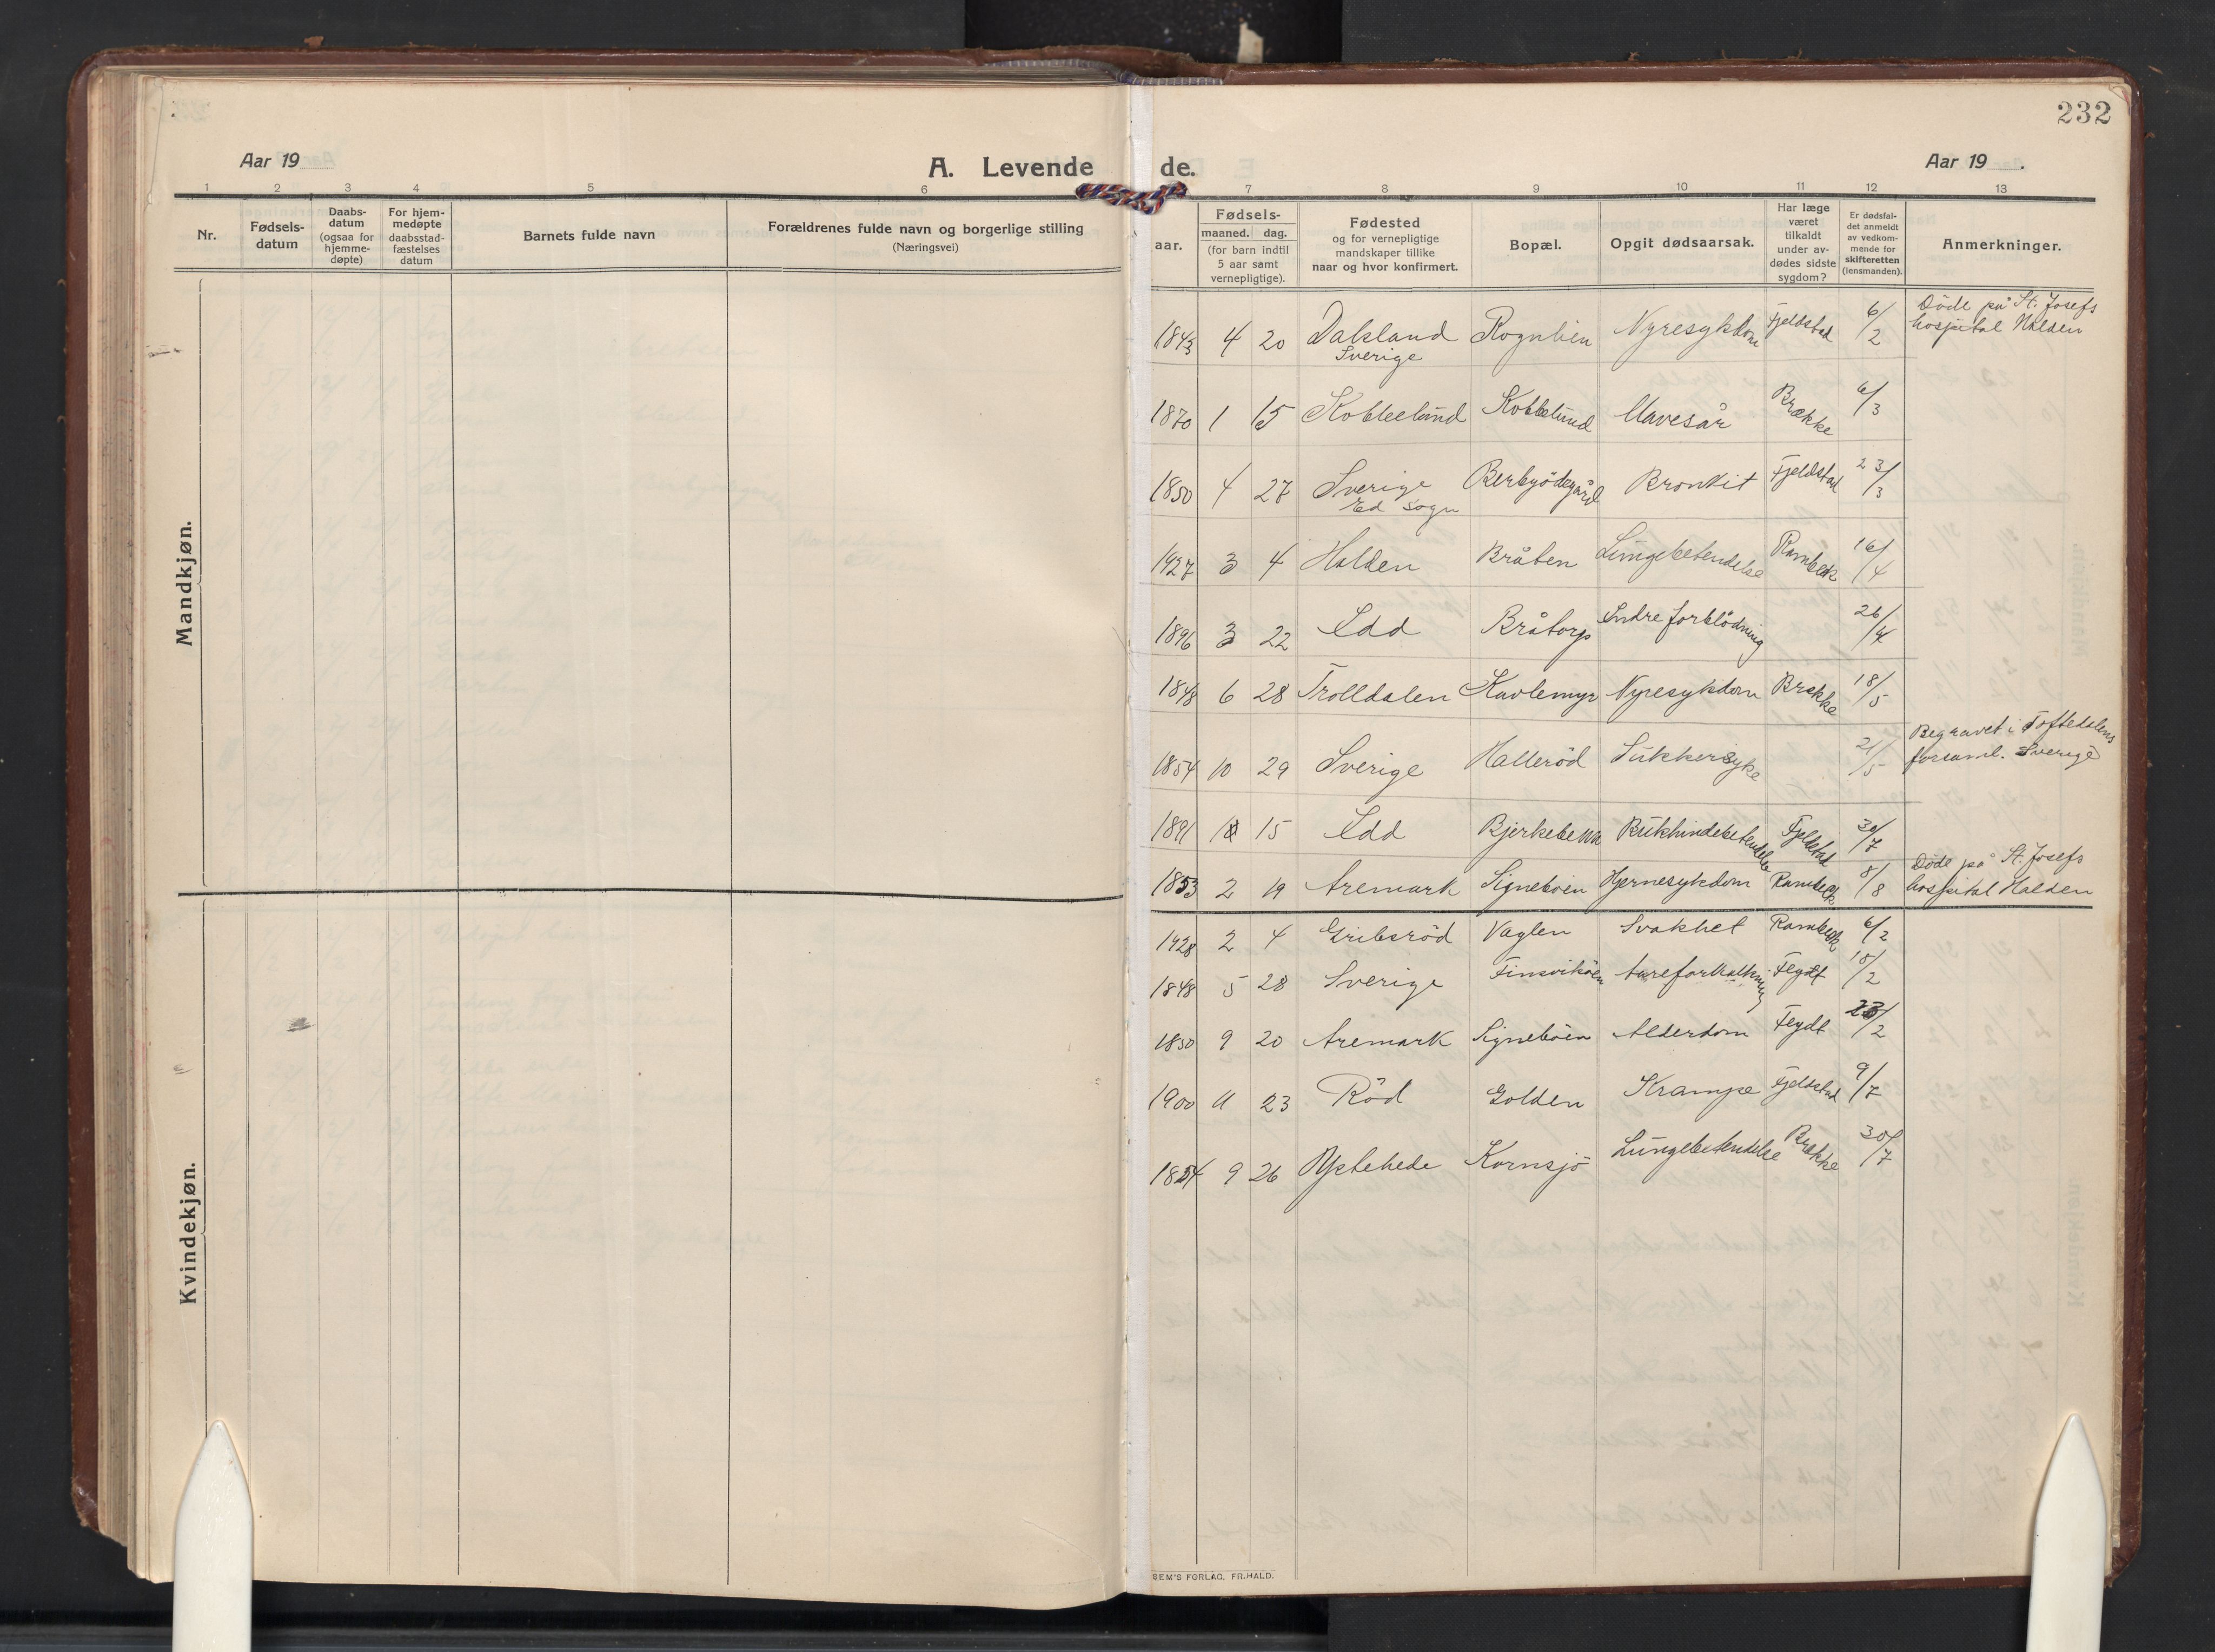 232
Aar 19
A. Levende
de.
Aar 19 .
1 2 3 4 5 6
7 8 9 10 11 12 13
Nr.
Fødsels-
datum
Daabs-
datum
(ogsaa for
hjemme-
døpte)
For hjem-
medøpte
daabsstad-
fæstelses
datum
Barnets fulde navn
Forældrenes fulde navn og borgerlige stilling
(Næringsvei)
aar.
Fødsels-
maaned. dag.
(for barn indtil
5 aar samt
vernepligtige).
Fødested
og for vernepligtige
mandskaper tillike
naar og hvor konfirmert.
Bopæl.
Opgit dødsaarsak.
Har læge
været
tilkaldt
under av-
dødes sidste
sygdom?
Er dødsfal-
det anmeldt
av vedkom-
mende for
skifteretten
(lensmanden).
Anmerkninger.
Mandkjøn.
1843 4 20 Dalsland Rognlien Nyresykdom Fjeldstad 6/2 Døde på St. Josefs
Sverige hospital Halden
1870 1 15 Kobbelund Kobbelund Mavesår Brække 6/3
1850 4 27 Sverige Berbyødegård Bronkit Fjeldstad 23/3
Ed sogn
1927 3 4 Halden Bråten Lungebetendelse Rambeck 16/4
1896 3 22 Idd Bråtorp Indre forblödning 26/4
1848 6 28 Trolldalen Kavlemyr Nyresykdom Brække 18/5
1854 10 29 Sverige Hallerød Sukkersyke 21/5 Begravet i Töftedalens
forsaml. Sverige
1891 15 Idd Bjerkebekk Bukhindebetendelse Fjeldstad 30/7
1853 2 19 Aremark Signebøen Hjernesykdom Rambeck 8/8 Døde på St. Josefs
hospital Halden
Kvindekjøn.
1928 2 4 Gribsrød Vaglen Svakhet Rambeck 6/2
1848 5 28 Sverige Finsvikåen Aareforkalkning Feydt 18/2
1850 9 20 Aremark Signebøen Alderdom Feydt 23/2
1900 11 23 Röd Holden Krampe Fjeldstad 9/7
1854 9 26 Ystehede Kornsjö Lungebetendelse Brække 30/7
SEM'S FORLAG, FR.HALD.